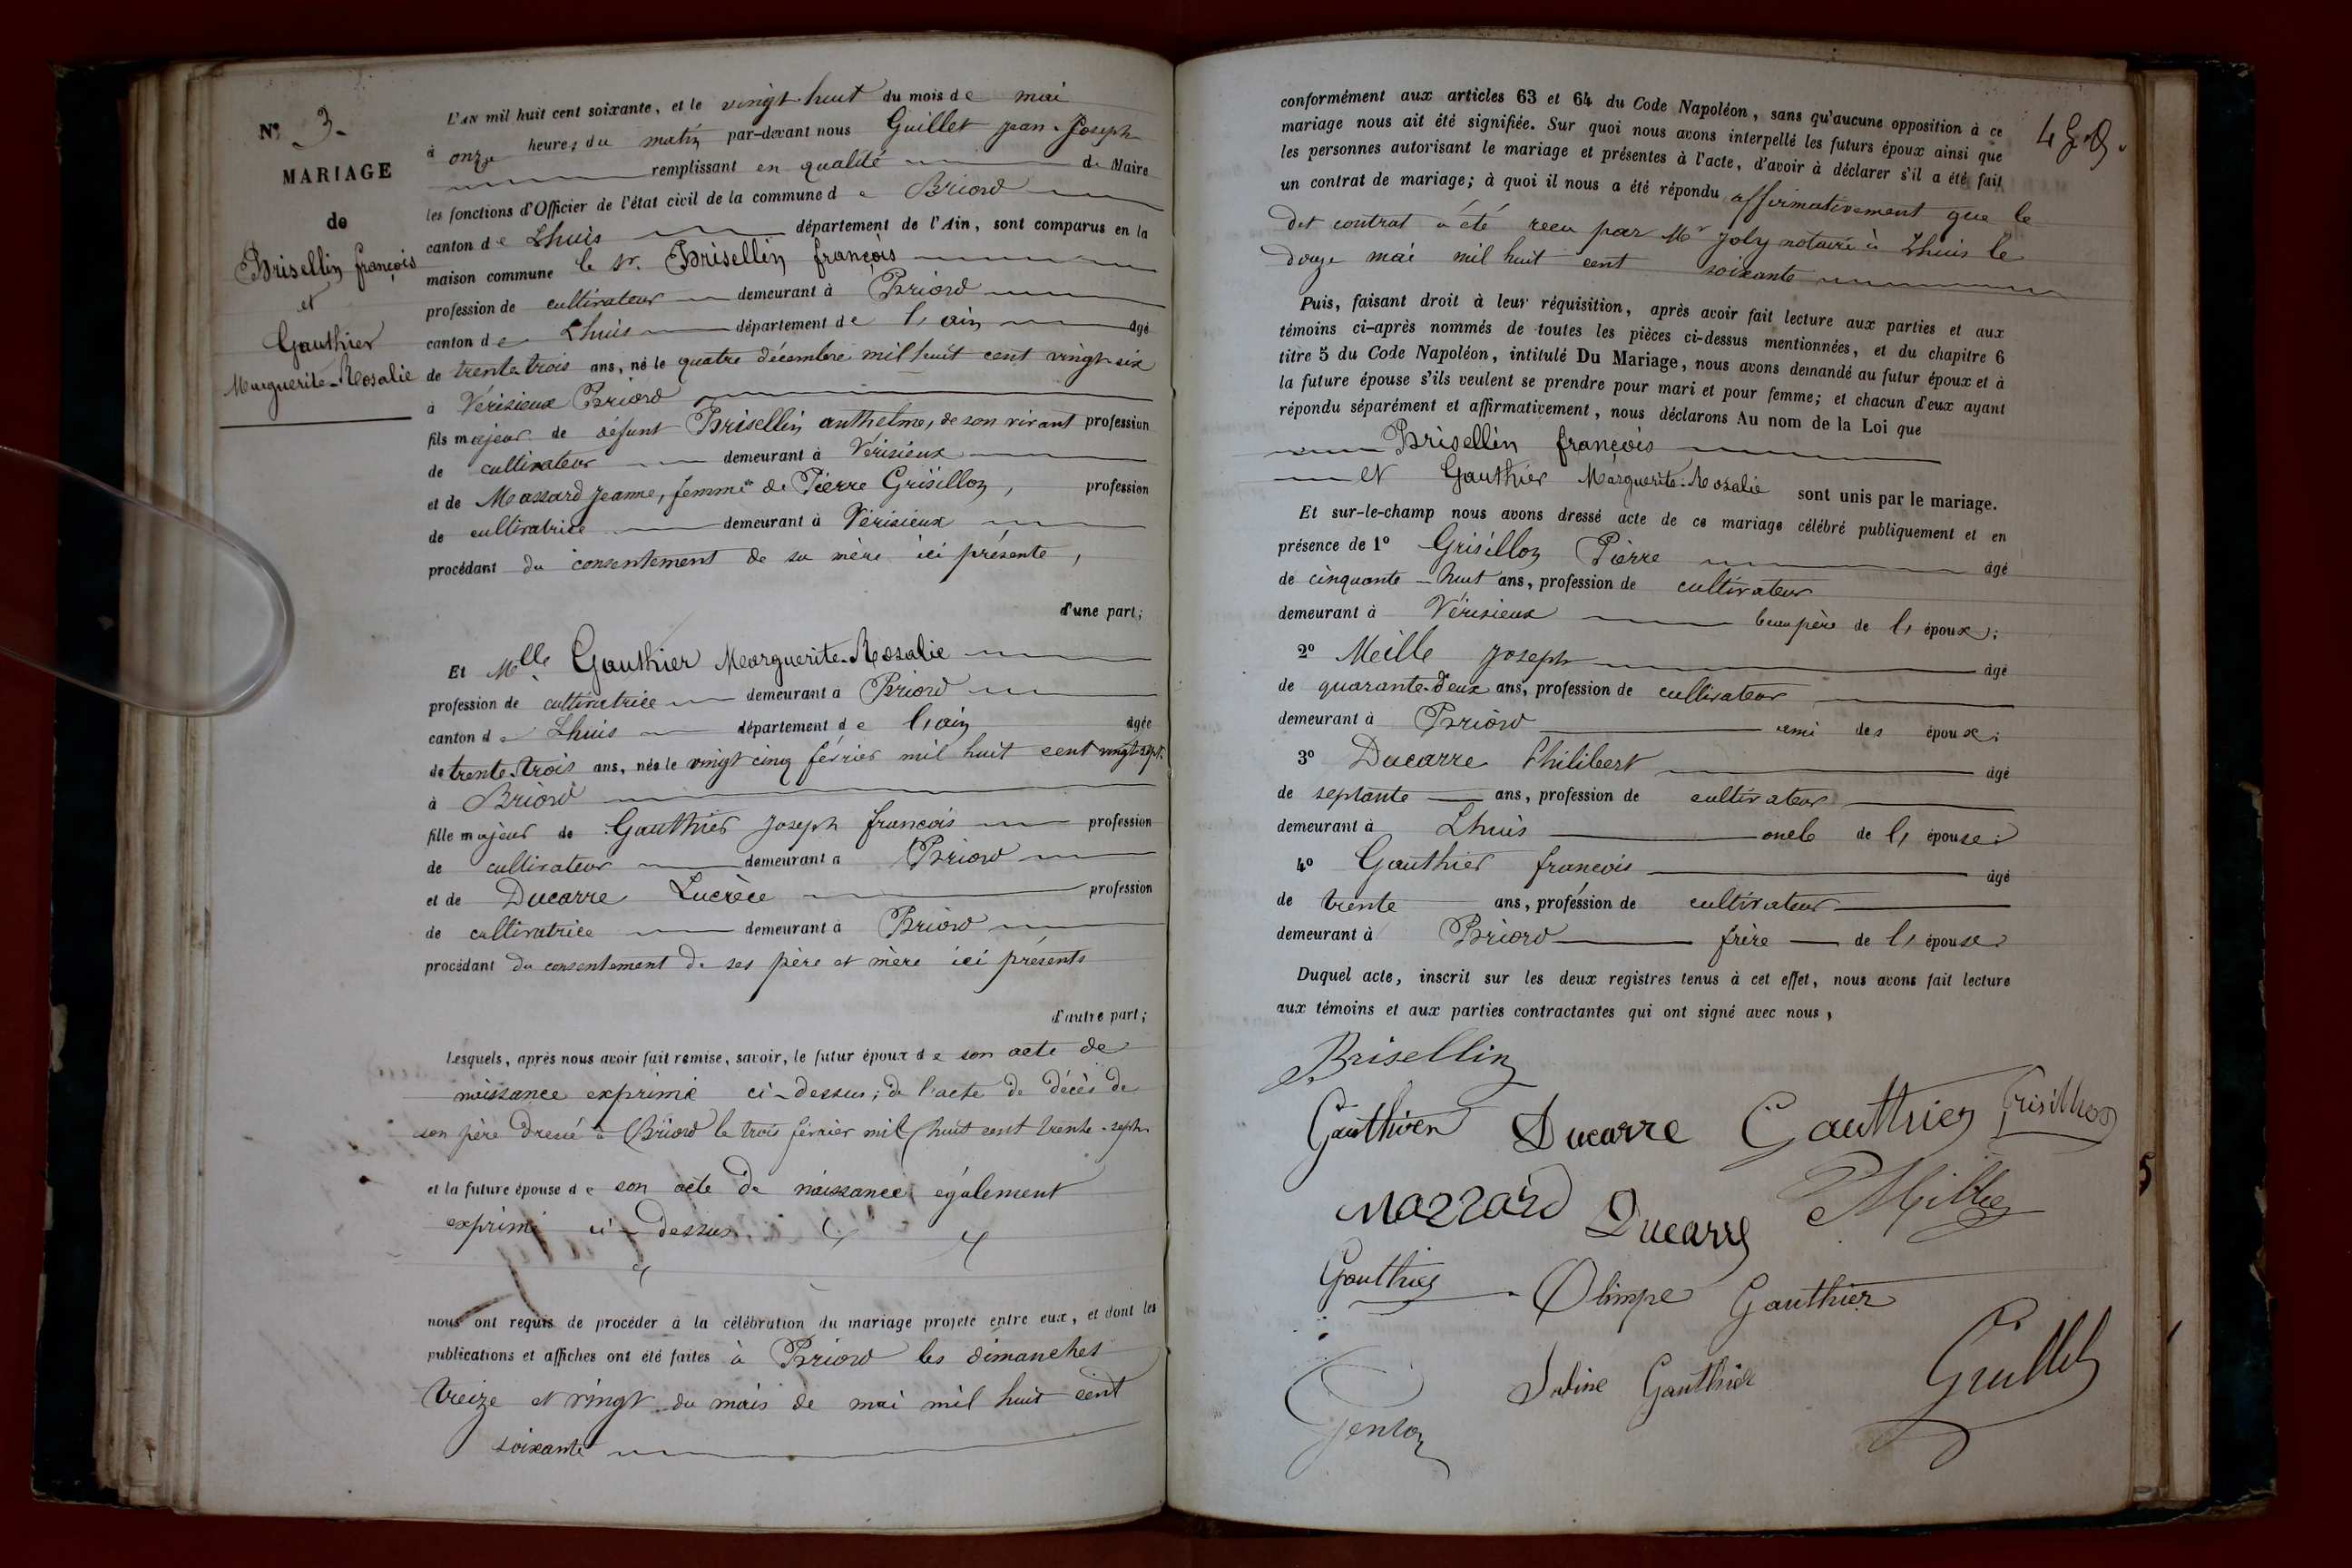 N° 3.
MARIAGE
de
Brisellin françois
et
Gauthier
Marguerite-Rosalie
L'AN mil huit cent soixante, et le vingt-huit du mois de mai
à onze heures du matin par-devant nous Guillet jean-Joseph
remplissant en qualité de Maire
les fonctions d'Officier de l'état civil de la commune de Briord
canton de Lhuis département de l'Ain, sont comparus en la
maison commune le Sr. Brisellin françois
profession de cultivateur demeurant à Briord
canton de Lhuis département de l'ain âgé
de trente trois ans, né le quatre décembre mil huit cent vingt-six
à Vérisieux Briord
fils majeur de défunt Brisellin anthelme, de son vivant profession
de cultivateur demeurant à Vérisieux
et de Massard Jeanne, femme de Pierre Grisillon, profession
de cultivatrice demeurant à Vérisieux
procédant du consentement de sa mère ici présente,
d'une part;
Et Mlle Gauthier Marguerite-Rosalie
profession de cultivatrice demeurant à Briord
canton de Lhuis département de l'ain âgée
de trente-trois ans, née le vingt cinq février mil huit cent vingt-sept.
à Briord
fille majeur de Gauthier Joseph francois profession
de cultivateur demeurant à Briord
et de Ducarre Lucrèce profession
de cultivatrice demeurant à Briord
procédant du consentement de ses père et mère ici présents
d'autre part;
Lesquels, après nous avoir fait remise, savoir, le futur époux de son acte de
naissance exprimé ci-dessus; de l'acte de décès de
son père dressé à Briord le trois février mil huit cent trente-sept
et la future épouse de son acte de naissance également
exprimé ci-dessus
nous ont requis de procéder à la célébration du mariage projeté entre eux, et dont les
publications et affiches ont été faites à Briord les dimanches
treize et vingt du mois de mai mil huit cent
soixante
conformément aux articles 63 et 64 du Code Napoléon, sans qu'aucune opposition à ce
mariage nous ait été signifiée. Sur quoi nous avons interpellé les futurs époux ainsi que
les personnes autorisant le mariage et présentes à l'acte, d'avoir à déclarer s'il a été fait
un contrat de mariage; à quoi il nous a été répondu affirmativement que le
dit contrat a été recu par Mr Joly notaire à Lhuis le
douze mai mil huit cent soixante
Puis, faisant droit à leur réquisition, après avoir fait lecture aux parties et aux
témoins ci-après nommés de toutes les pièces ci-dessus mentionnées, et du chapitre 6
titre 5 du Code Napoléon, intitulé Du Mariage, nous avons demandé au futur époux et à
la future épouse s'ils veulent se prendre pour mari et pour femme; et chacun d'eux ayant
répondu séparément et affirmativement, nous déclarons Au nom de la Loi que
Brisellin françois
et Gauthier Marguerite-Rosalie sont unis par le mariage.
Et sur-le-champ nous avons dressé acte de ce mariage célébré publiquement et en
présence de 1° Grisillon Pierre âgé
de cinquante-huit ans, profession de cultivateur
demeurant à Vérisieux beaupère de l'époux;
2° Meille Joseph âgé
de quarante-deux ans, profession de cultivateur
demeurant à Briord ami des époux;
3° Ducarre Philibert âgé
de septante ans, profession de cultivateur
demeurant à Lhuis oncle de l'épouse;
4° Gauthier francois âgé
de trente ans, profession de cultivateur
demeurant à Briord frère de l'épouse
Duquel acte, inscrit sur les deux registres tenus à cet effet, nous avons fait lecture
aux témoins et aux parties contractantes qui ont signé avec nous,
Brisellin
Gauthier Ducarre Gauthier Grisillon
Massard Ducarre
Gauthier Olimpe Gauthier
Gauthier Guillet